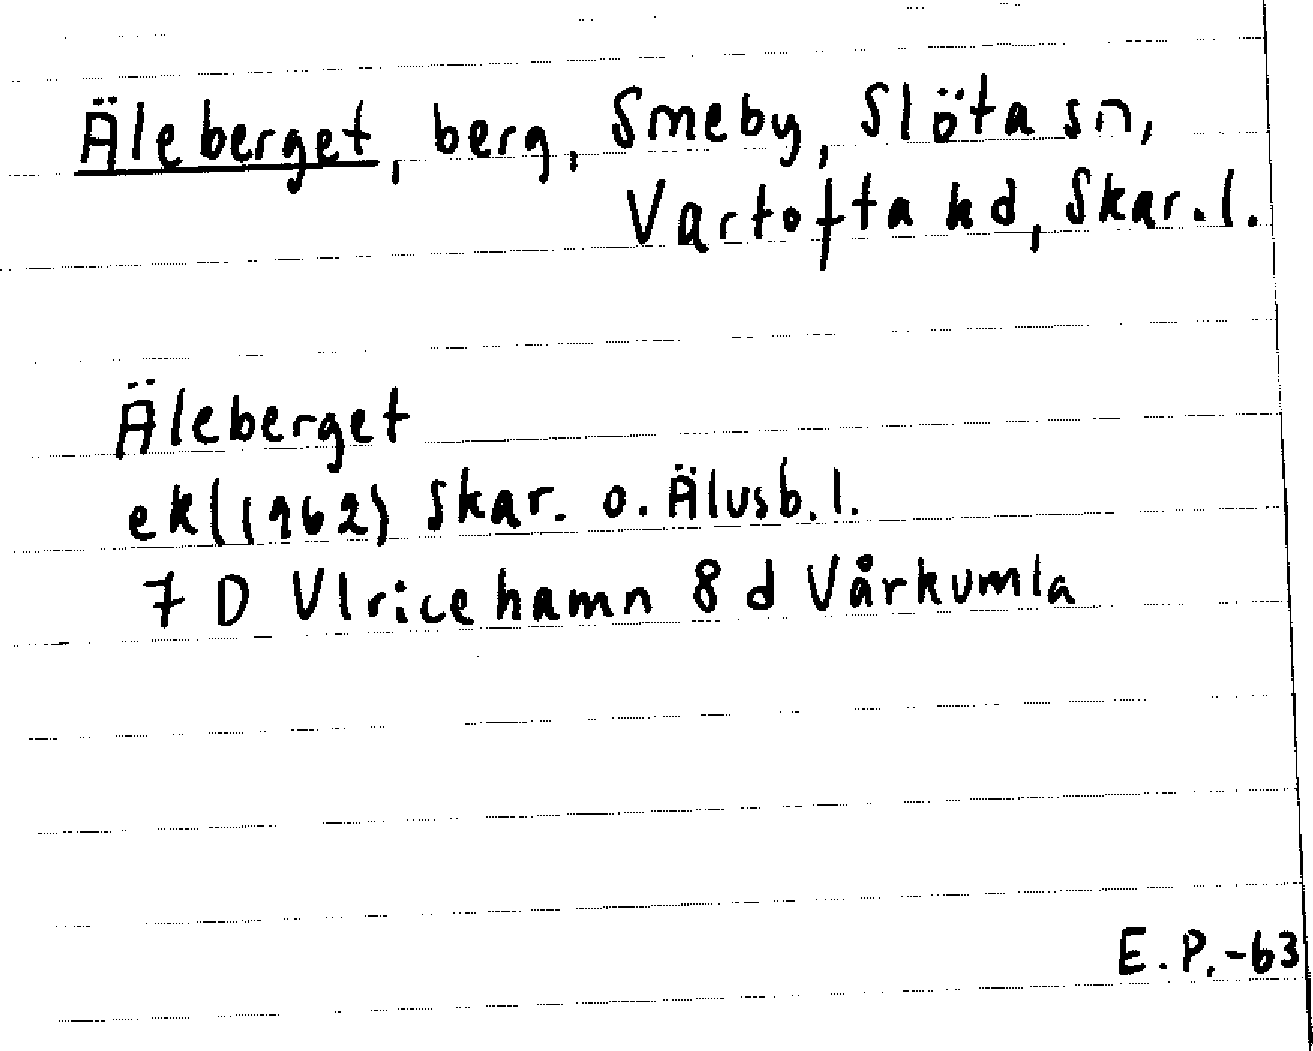 Äleberget, berg, Smeby, Slöta sn,
Vartofta hd, Skar. l.
Äleberget
ek (1962) Skar. o. Älvsb. l.
7 D Ulricehamn 8 d Vårkumla
E. P. -63